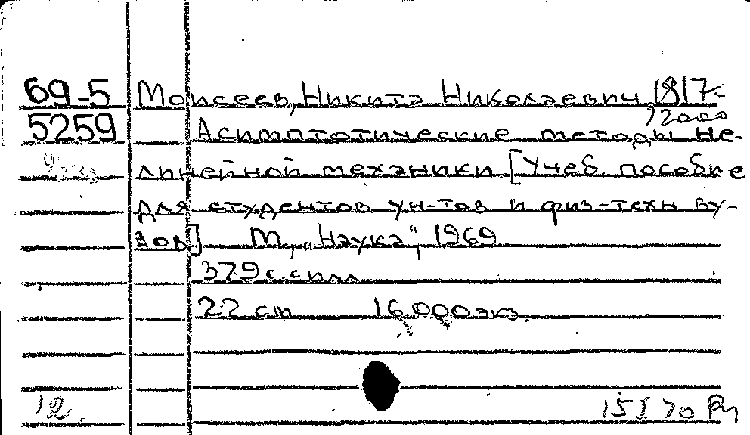 69-5 Моисеев, Никита Николаевич, 1817-
5259 Асимптотические методы не-
линейной механики [Учеб. пособие
для студентов ун-тов и физ-техн ву-
зов] М., „Наука", 1969
379 с. с илл
22 cm 16 000 экз.
12. 15 I 70